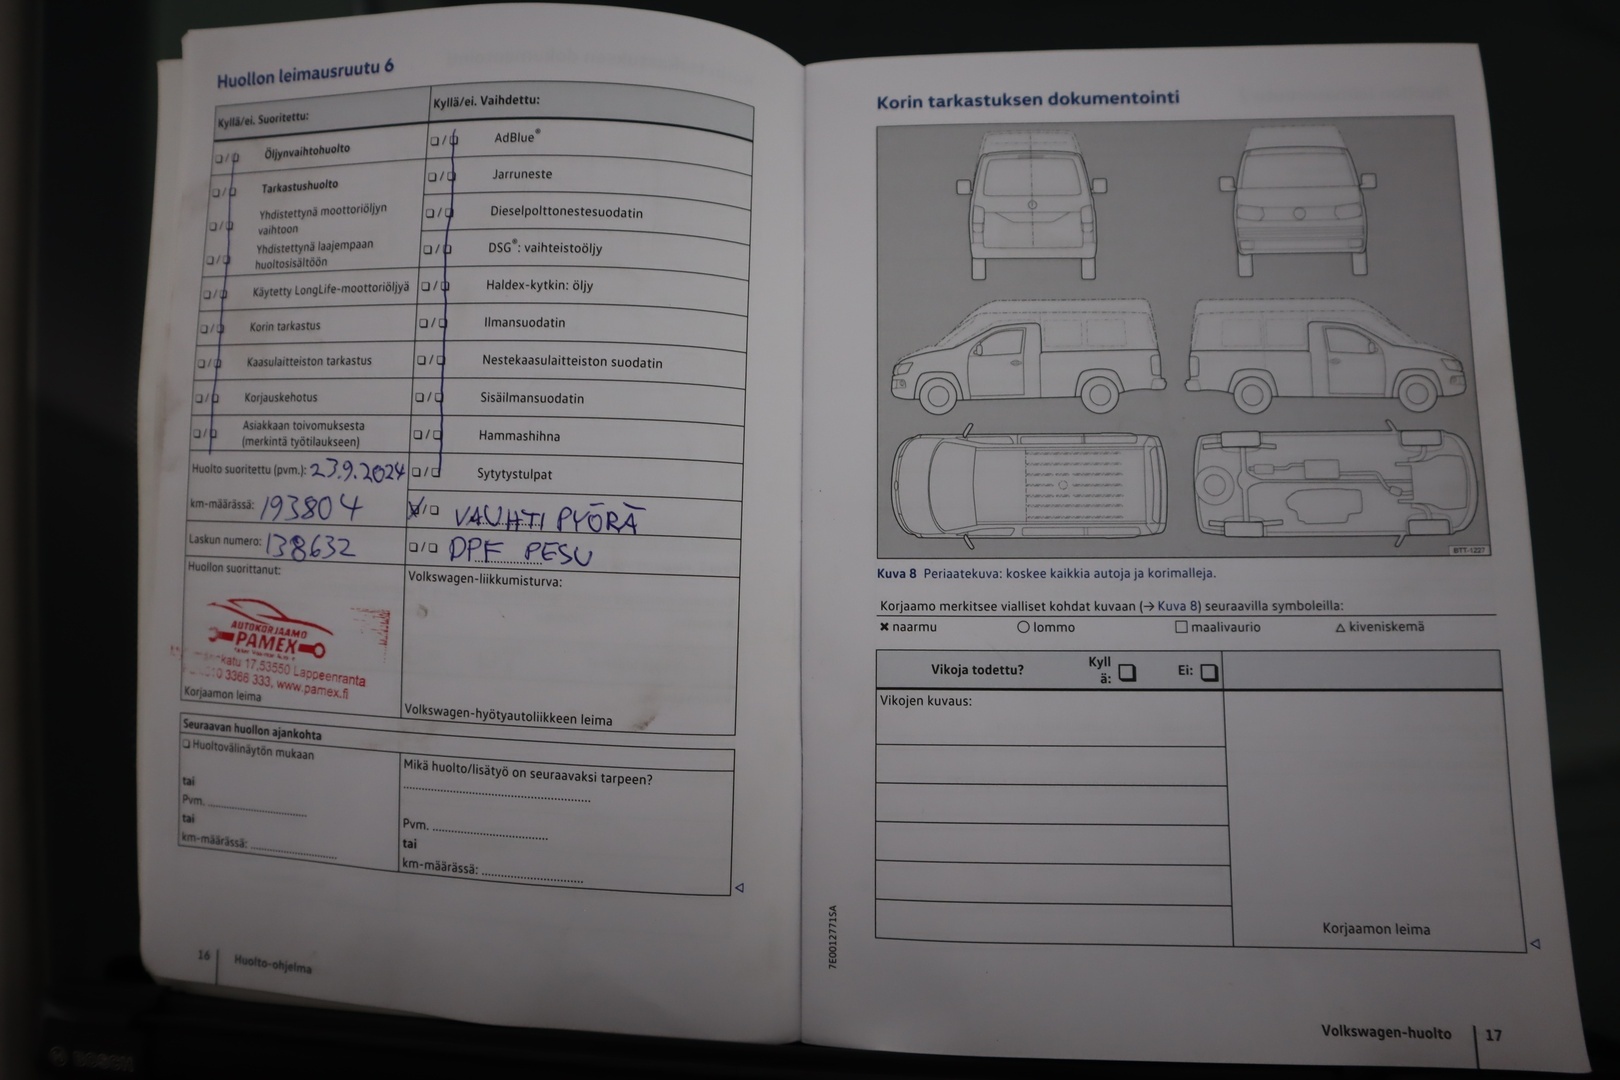 Huollon leimausruutu 6
Kyllä/ei. Suoritettu:
Kyllä/ei. Vaihdettu:
❑/❑ Öljynvaihtohuolto
❑/❑ AdBlue®
❑/❑ Tarkastushuolto
❑/❑ Jarruneste
❑/❑ Yhdistettynä moottoriöljyn
vaihtoon
❑/❑ Dieselpolttonestesuodatin
❑/❑ Yhdistettynä laajempaan
huoltosisältöön
❑/❑ DSG®: vaihteistoöljy
❑/❑ Käytetty LongLife-moottoriöljyä
❑/❑ Haldex-kytkin: öljy
❑/❑ Korin tarkastus
❑/❑ Ilmansuodatin
❑/❑ Kaasulaitteiston tarkastus
❑/❑ Nestekaasulaitteiston suodatin
❑/❑ Korjauskehotus
❑/❑ Sisäilmansuodatin
❑/❑ Asiakkaan toivomuksesta
(merkintä työtilaukseen)
❑/❑ Hammashihna
Huolto suoritettu (pvm.): 23.9.2024
❑/❑ Sytytystulpat
km-määrässä: 193804
X/❑ VAUHTI PYÖRÄ
Laskun numero: 138632
❑/❑ DPF PESU
Huollon suorittanut:
Volkswagen-liikkumisturva:
AUTOKORJAAMO
PAMEX
katu 17,53550 Lappeenranta
3366 333, www.pamex.fi
Korjaamon leima
Volkswagen-hyötyautoliikkeen leima
Seuraavan huollon ajankohta
❑ Huoltovälinäytön mukaan
Mikä huolto/lisätyö on seuraavaksi tarpeen?
tai
Pvm.
Pvm.
tai
tai
km-määrässä:
km-määrässä:
16 Huolto-ohjelma
Korin tarkastuksen dokumentointi
BTT-1227
Kuva 8 Periaatekuva: koskee kaikkia autoja ja korimalleja.
Korjaamo merkitsee vialliset kohdat kuvaan (→ Kuva 8) seuraavilla symboleilla:
✖ naarmu ○ lommo □ maalivaurio △ kiveniskemä
Vikoja todettu? Kyll
ä: ❑ Ei: ❑
Vikojen kuvaus:
Korjaamon leima
7E0012771SA
Volkswagen-huolto 17